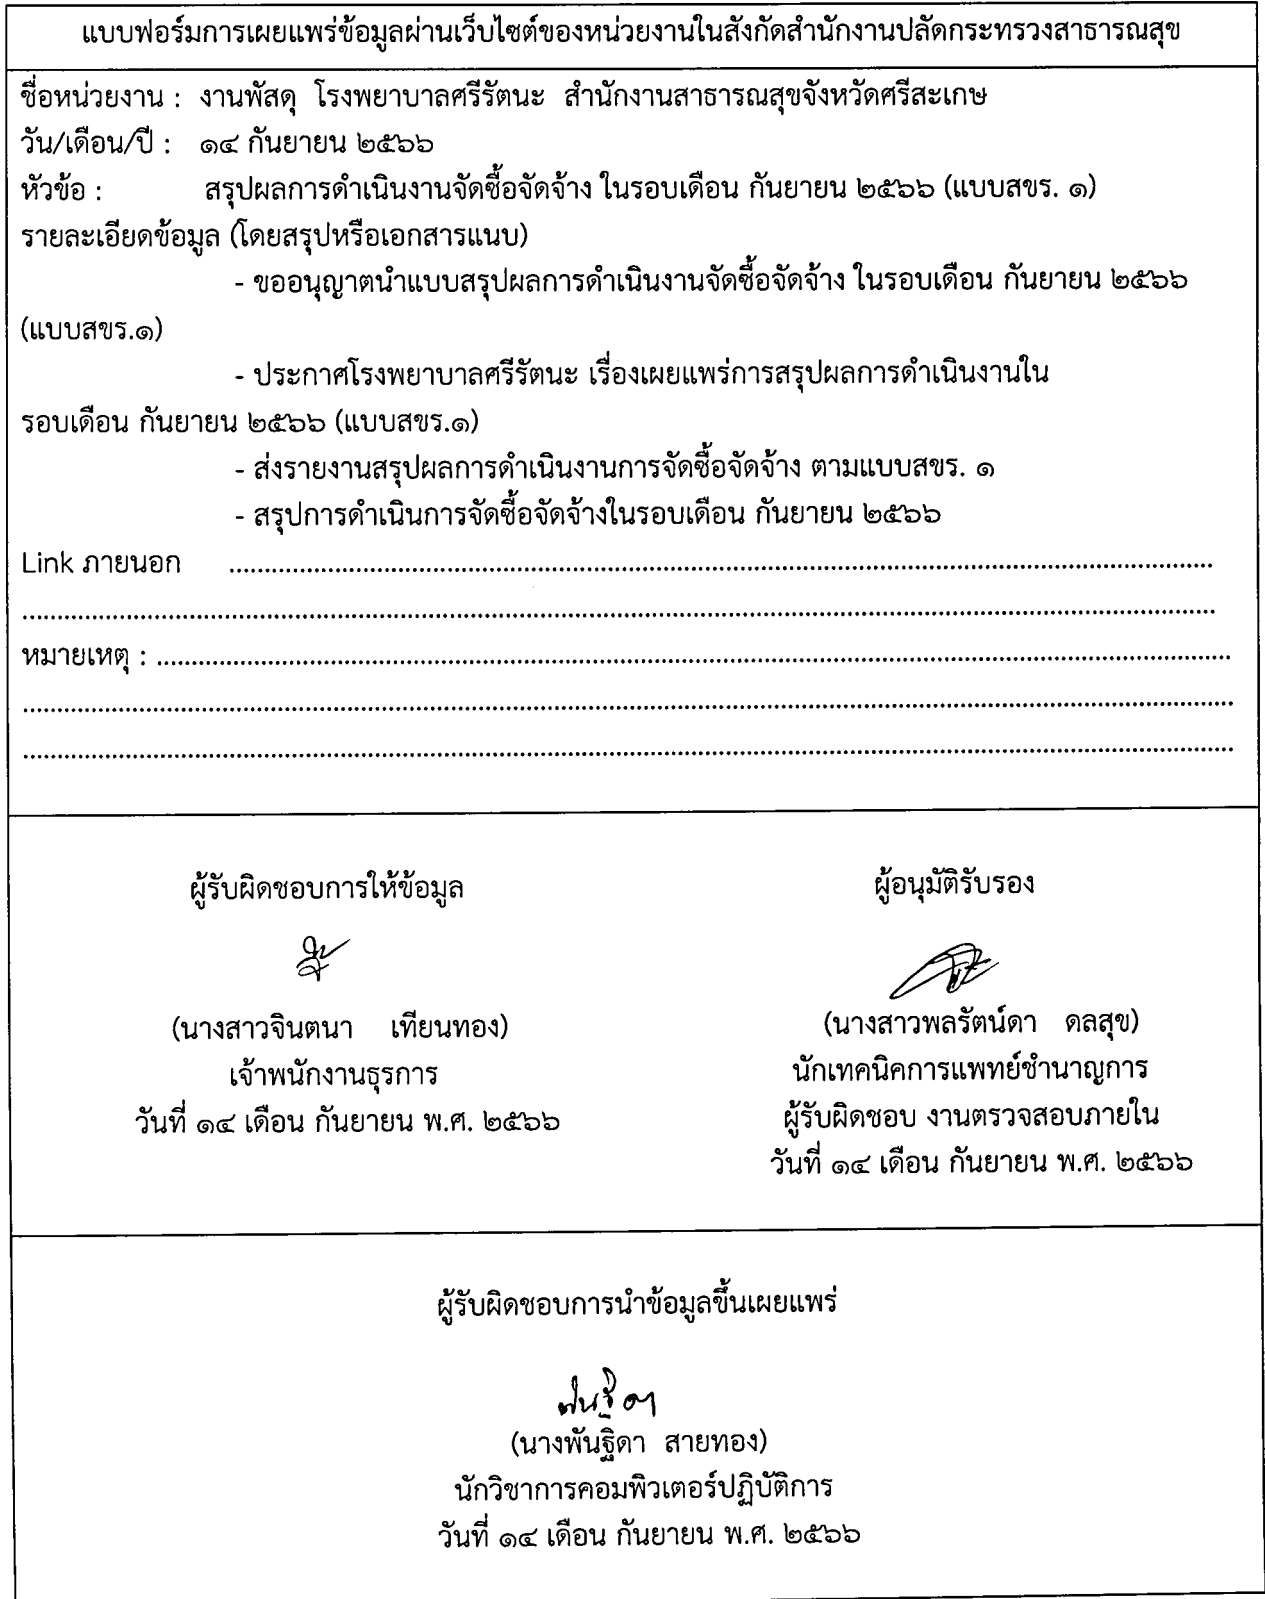 แบบฟอร์มการเผยแพร่ข้อมูลผ่านเว็บไซต์ของหน่วยงานในสังกัดสำนักงานปลัดกระทรวงสาธารณสุข
ชื่อหน่วยงาน : งานพัสดุ โรงพยาบาลศรีรัตนะ สำนักงานสาธารณสุขจังหวัดศรีสะเกษ
วัน/เดือน/ปี : ๑๔ กันยายน ๒๕๖๖
หัวข้อ : สรุปผลการดำเนินงานจัดซื้อจัดจ้าง ในรอบเดือน กันยายน ๒๕๖๖ (แบบสขร. ๑)
รายละเอียดข้อมูล (โดยสรุปหรือเอกสารแนบ)
- ขออนุญาตนำแบบสรุปผลการดำเนินงานจัดซื้อจัดจ้าง ในรอบเดือน กันยายน ๒๕๖๖
(แบบสขร.๑)
- ประกาศโรงพยาบาลศรีรัตนะ เรื่องเผยแพร่การสรุปผลการดำเนินงานใน
รอบเดือน กันยายน ๒๕๖๖ (แบบสขร.๑)
- ส่งรายงานสรุปผลการดำเนินงานการจัดซื้อจัดจ้าง ตามแบบสขร. ๑
- สรุปการดำเนินการจัดซื้อจัดจ้างในรอบเดือน กันยายน ๒๕๖๖
Link ภายนอก ........................................
........................................
หมายเหตุ : ........................................
........................................
........................................
ผู้รับผิดชอบการให้ข้อมูล
(นางสาวจินตนา เทียนทอง)
เจ้าพนักงานธุรการ
วันที่ ๑๔ เดือน กันยายน พ.ศ. ๒๕๖๖
ผู้อนุมัติรับรอง
(นางสาวพลรัตน์ดา ดลสุข)
นักเทคนิคการแพทย์ชำนาญการ
ผู้รับผิดชอบ งานตรวจสอบภายใน
วันที่ ๑๔ เดือน กันยายน พ.ศ. ๒๕๖๖
ผู้รับผิดชอบการนำข้อมูลขึ้นเผยแพร่
(นางพันฐิดา สายทอง)
นักวิชาการคอมพิวเตอร์ปฏิบัติการ
วันที่ ๑๔ เดือน กันยายน พ.ศ. ๒๕๖๖